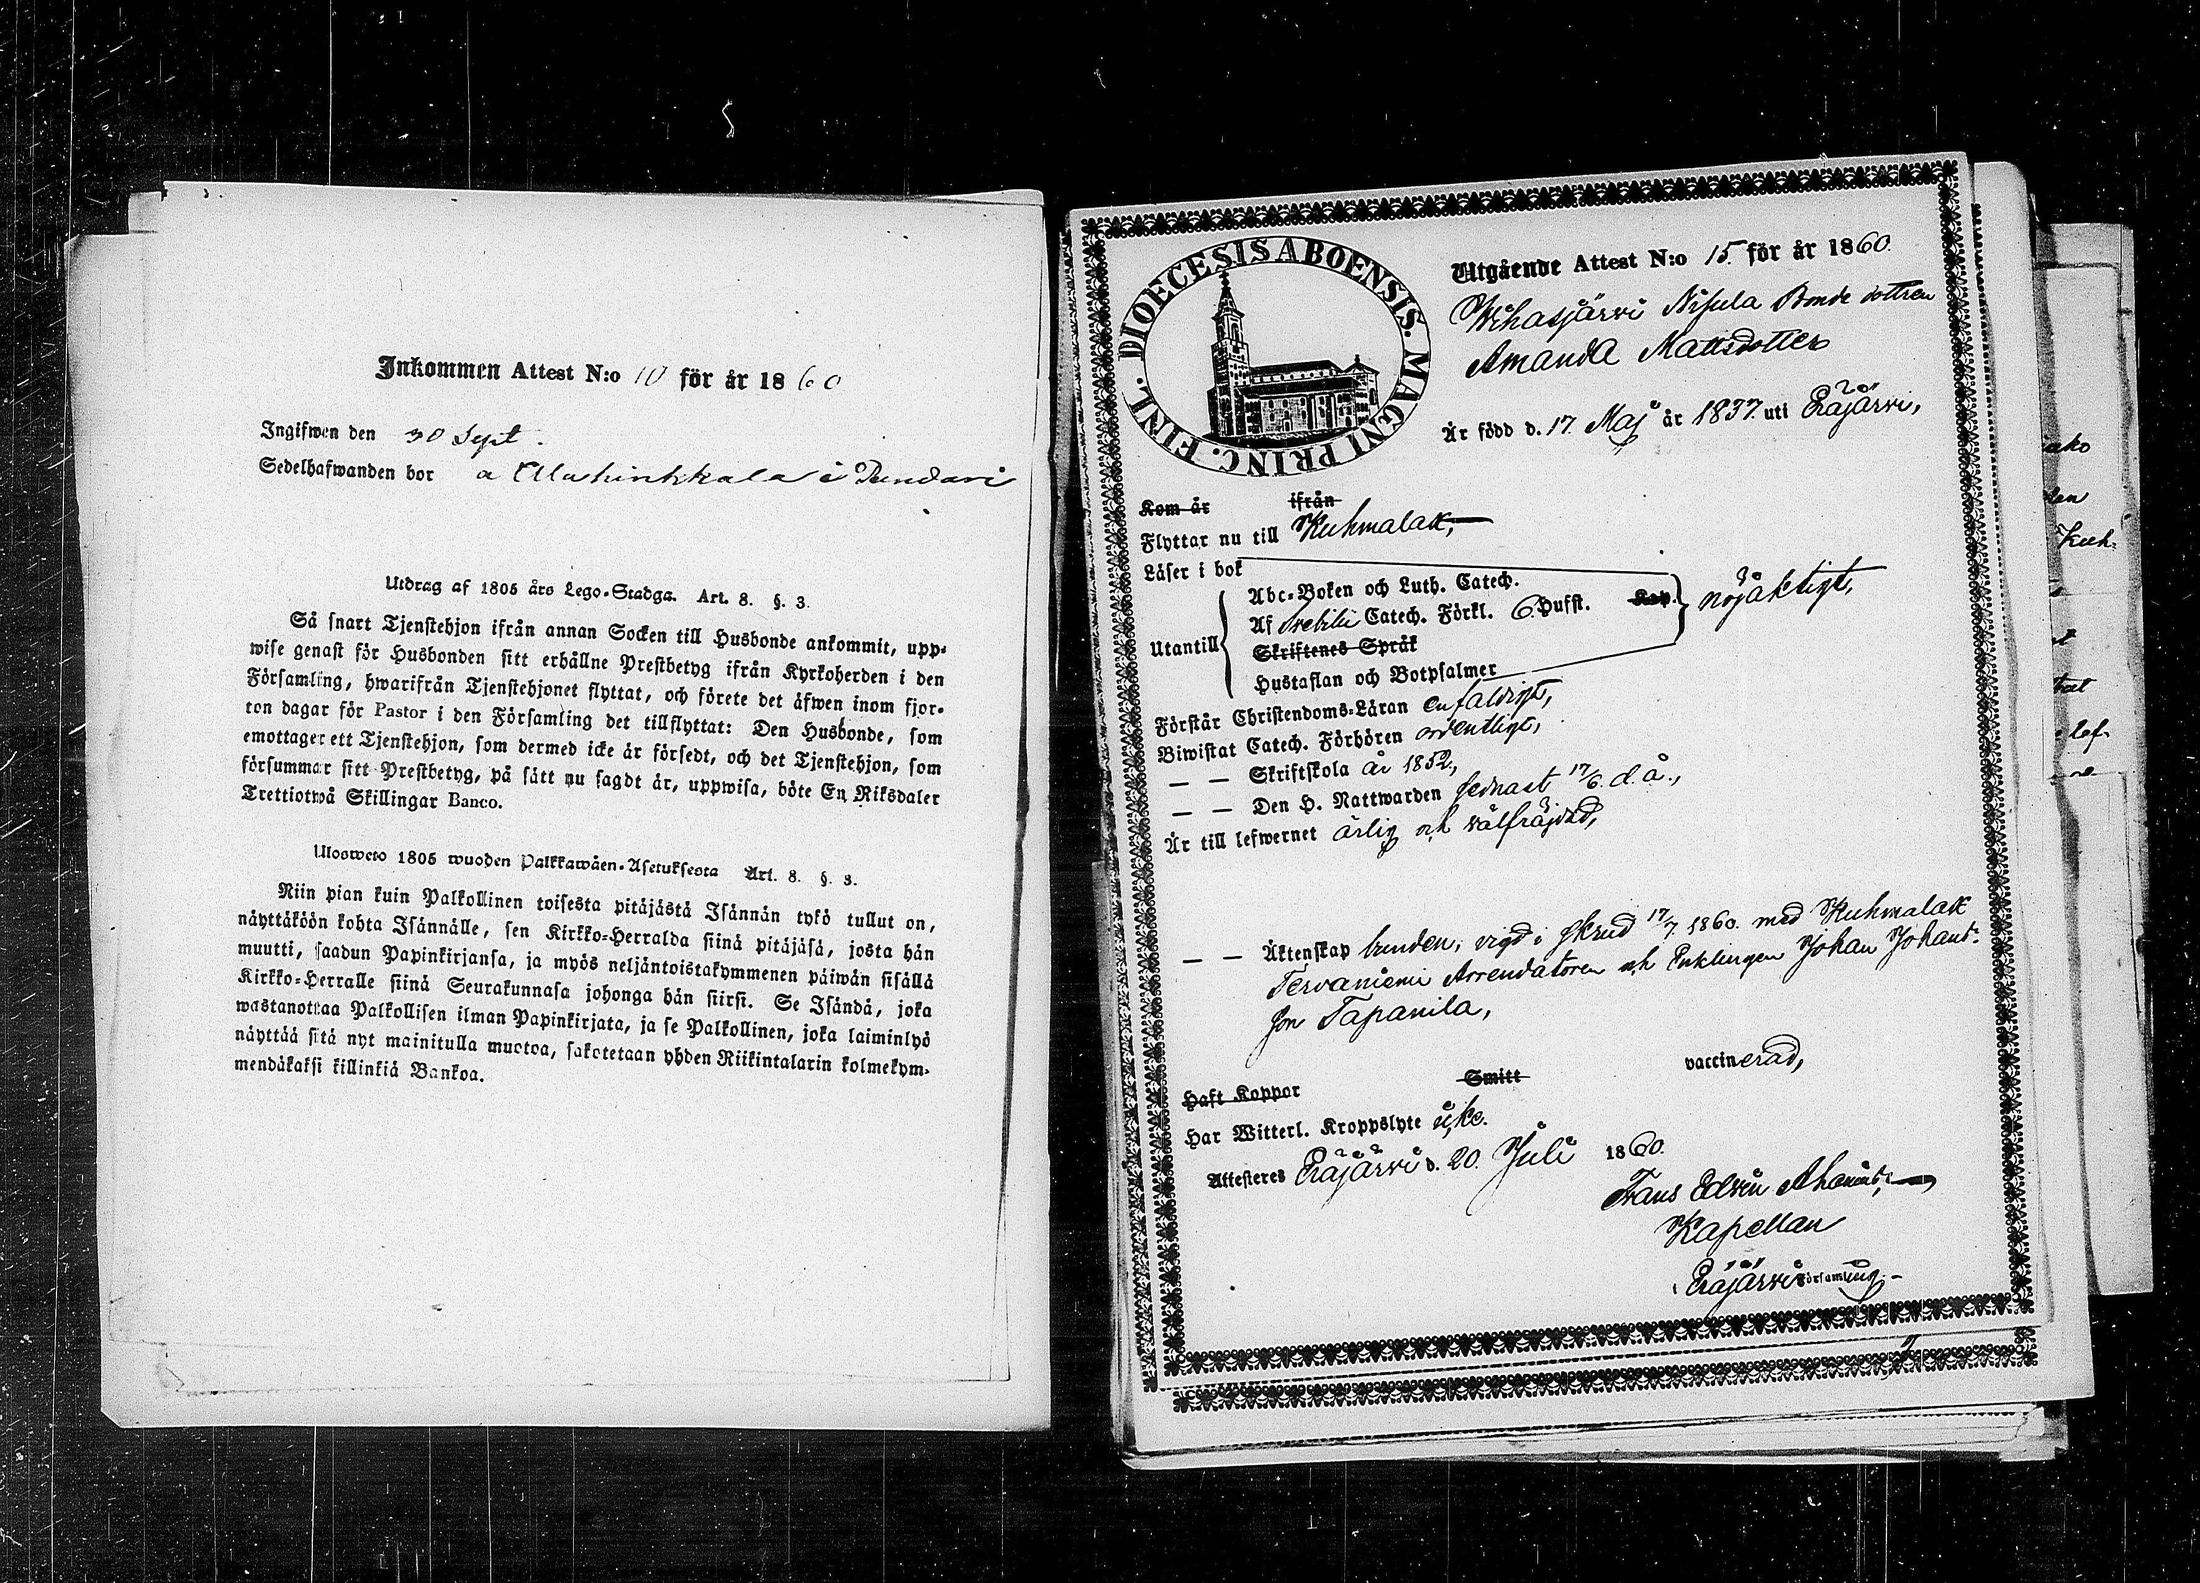 Inkommen Attest N:o 10 för år 1860
Ingifwen den 30 Sept.
Sedelhafwanden bor a Alahinkkala i Pundari
Utdrag af 1805 års Lego-Stadga. Art. 8. §. 3.
Så snart Tjenstehjon ifrån annan Socken till Husbonde ankommit, upp-
wise genast för Husbonden sitt erhållne Prestbetyg ifrån Kyrkoherden i den
Församling, hwarifrån Tjenstehjonet flyttat, och förete det äfwen inom fjor-
ton dagar för Pastor i den Församling det tillflyttat: Den Husbonde, som
emottager ett Tjenstehjon, som dermed icke är försedt, och det Tjenstehjon, som
försummar sitt Prestbetyg, på sätt nu sagdt är, uppwisa, böte En Riksdaler
Trettiotwå Skillingar Banco.
Ulosweto 1805 wuoden Palkkawäen-Asetuksesta Art. 8. §. 3.
Niin pian kuin Palkollinen toisesta pitäjästä Isännän tykö tullut on,
näyttäköön kohta Isännälle, sen Kirkko-Herralda siinä pitäjäsä, josta hän
muutti, saadun Papinkirjansa, ja myös neljäntoistakymmenen päiwän sisällä
Kirkko-Herralle siinä Seurakunnasa johonga hän siirsi. Se Isändä, joka
wastanottaa Palkollisen ilman Papinkirjata, ja se Palkollinen, joka laiminlyö
näyttää sitä nyt mainitulla muotoa, sakotetaan yhden Riikintalarin kolmekym-
mendäkaksi killinkiä Bankoa.
DIOECESIS ABOENSIS. MAGNI PRINC. FINL.
Utgående Attest N:o 15. för år 1860.
Wihasjärvi Nisula Bonde dottren
Amanda Mattsdotter
Är född d. 17. Maj år 1837. uti Eräjärvi,
Kom år ifrån
Flyttar nu till Kuhmalax,
Läser i bok
Utantill
Abc-Boken och Luth. Catech.
Af Svebilii Catech. Förkl. 6. Hufst. Kap.
Skriftenes Språk
Hustaflan och Botpsalmer
nöjaktigt,
Förstår Christendoms-Läran enfaldigt,
Biwistat Catech. Förhören ordentligt,
— — Skriftskola år 1852,
— — Den H. Nattwarden sednast 17/6. d. å.,
Är till lefwernet ärlig och välfräjdad,
— — Äktenskap bunden, vigd i skrud 17/7. 1860. med Kuhmalax
Tervaniemi Arrendatoren och Enklingen Johan Johans-
son Tapanila,
Haft Koppor Smitt vaccinerad,
Har Witterl. Kroppslyte icke.
Attesteres Eräjärvi d. 20. Juli 1860.
Frans Edvin
Kapellan
Eräjärvi Församling.